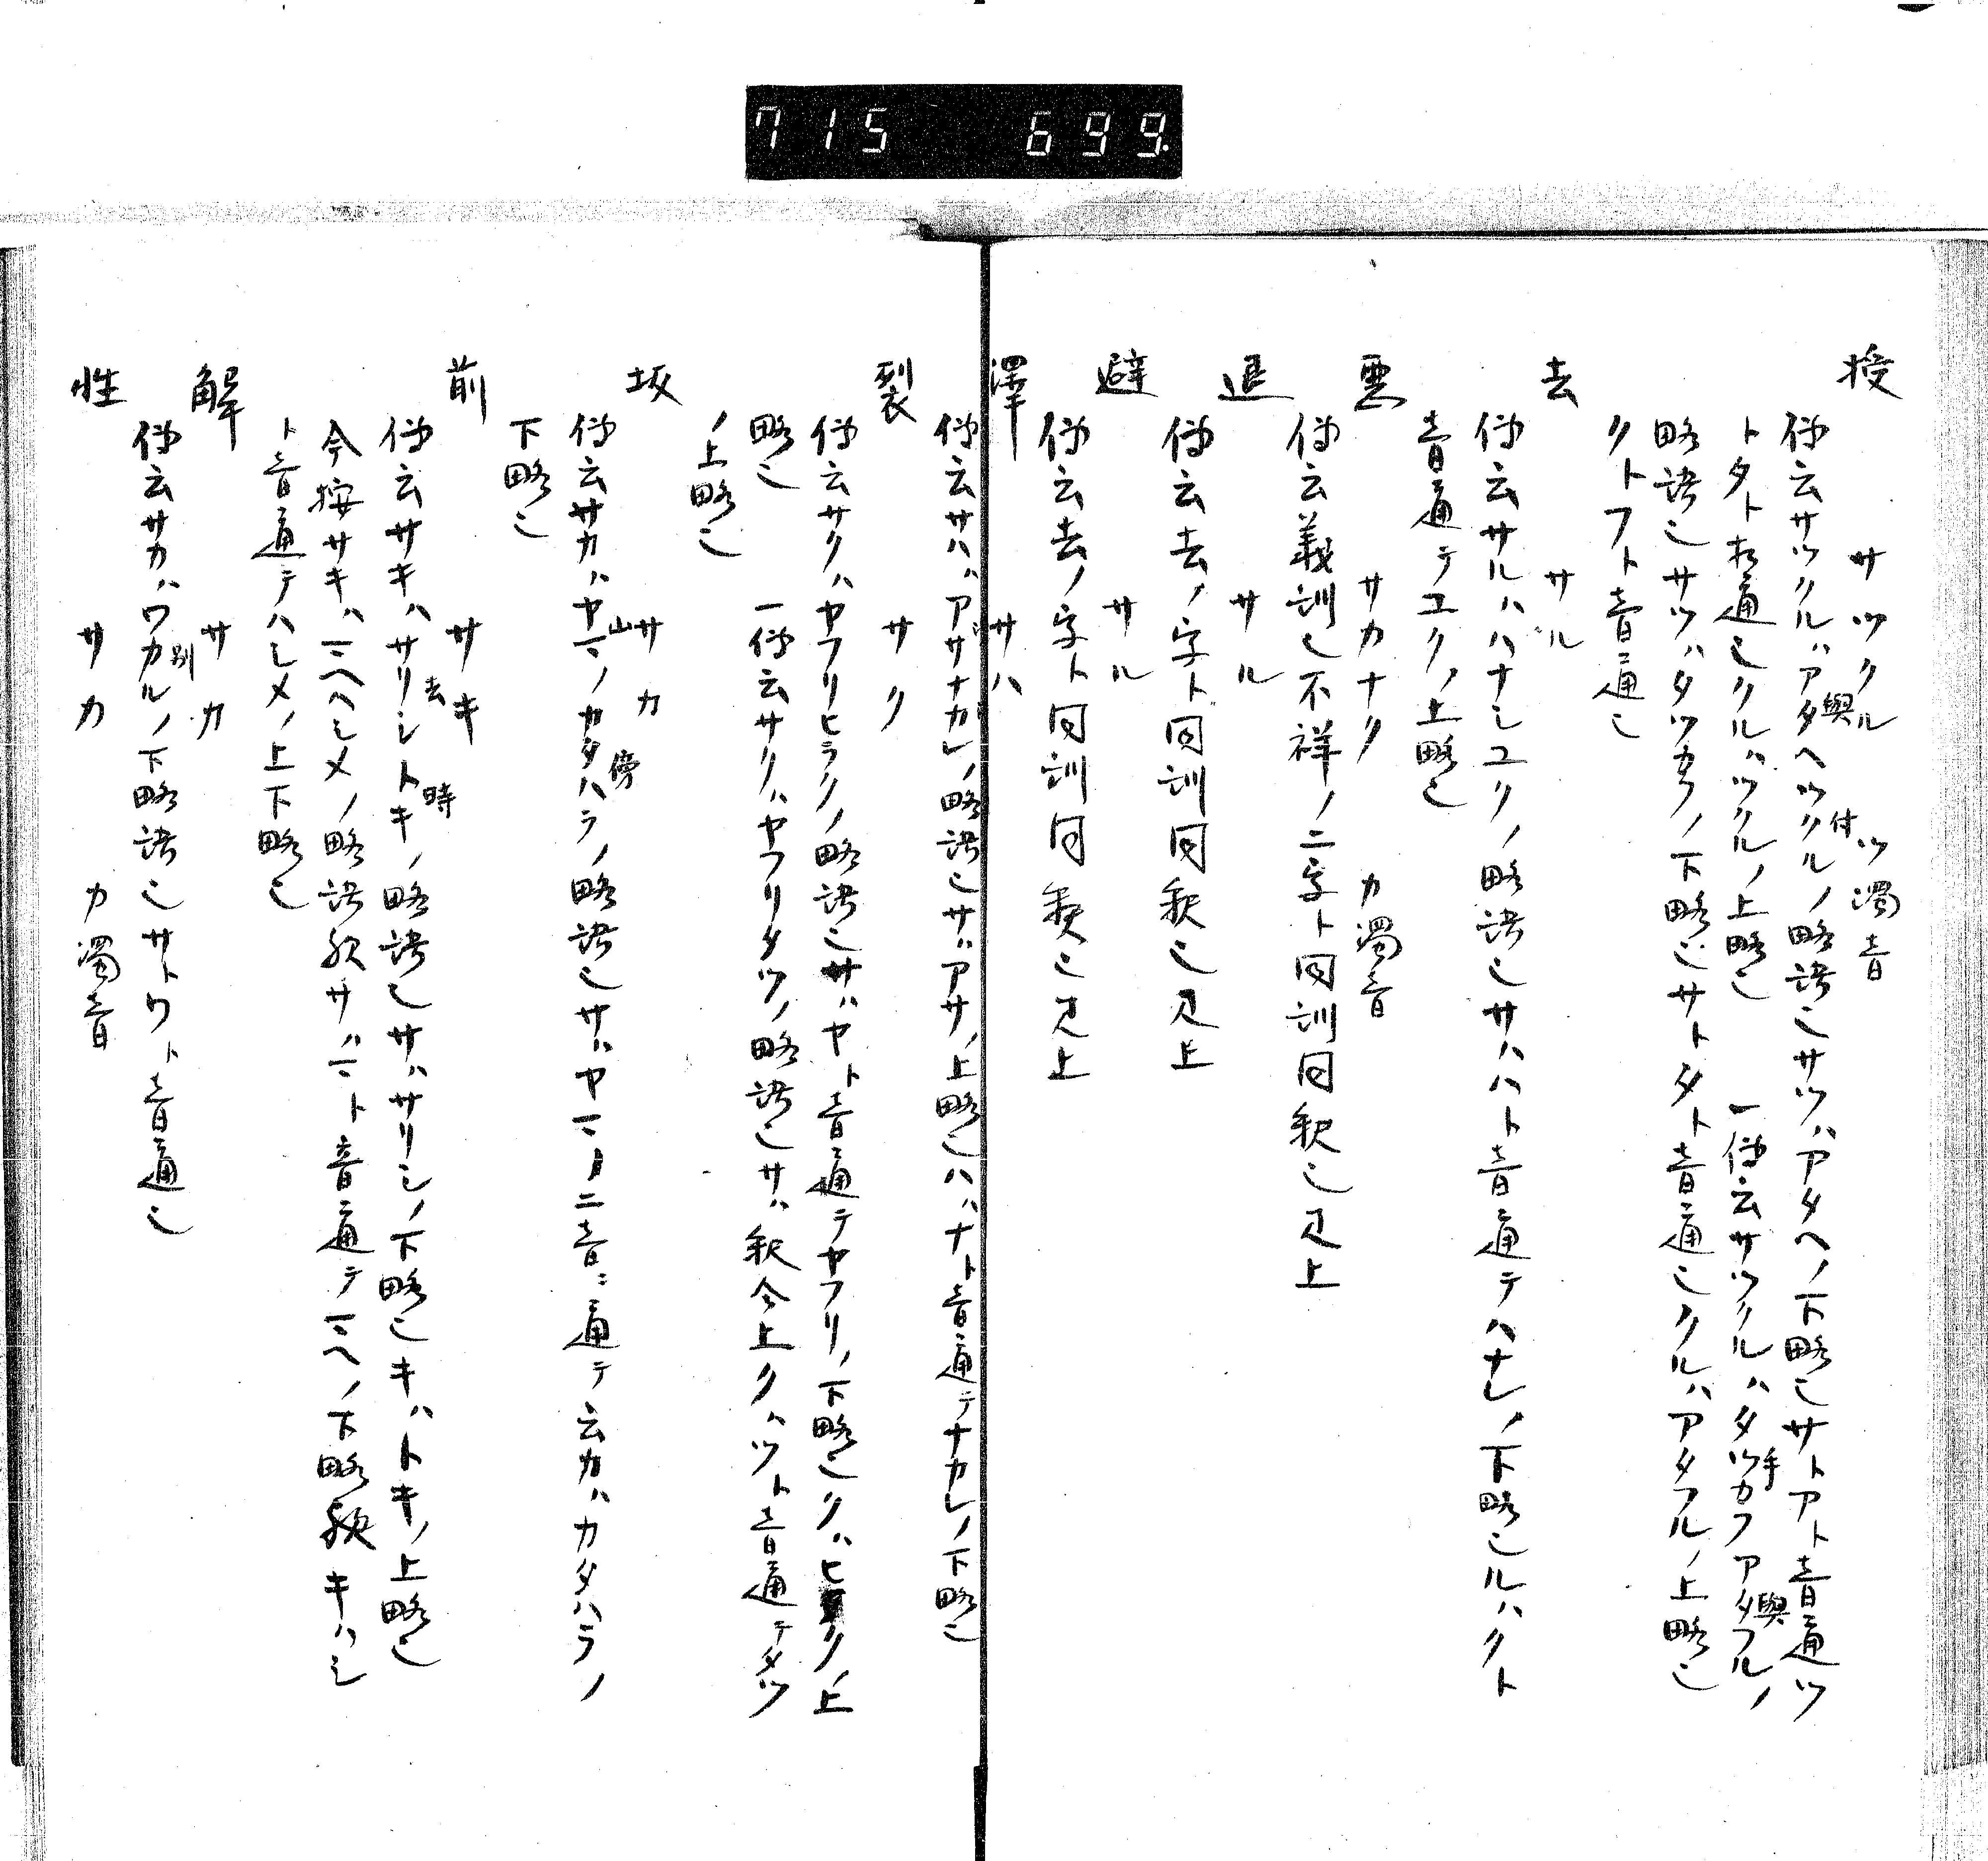 715 699.
授 サツクル ツ濁音
傳云サツクルハアタヘツクルノ略語也サツハアタヘノ下略也サトアト音通ツ
トタト相通也クルハツクルノ上略也 一傳云サツクルハタツカフアタフルノ
略語也サツハタツカフノ下略也サトタト音通也クルハアタフルノ上略也
クトフト音通也
去 サル
傳云サルハハナレユクノ略語也サハハト音通テハナレノ下略也ルハクト
音通テユクノ上略也
悪 サカナク カ濁音
傳云義訓也不祥ノ二字ト同訓同釈也見上
退 サル
傳云去ノ字ト同訓同釈也見上
避 サル
傳云去ノ字ト同訓同釈也見上
澤 サハ
傳云サハハアサナカレノ略語也サハアサノ上略也ハハナト音通テナカレノ下略也
裂 サク
傳云サクハヤフリヒラクノ略語也サハヤト音通テヤフリノ下略也クハヒラクノ上
略也 一傳云サクハヤフリタツノ略語也サハ釈全上クハツト音通テタツ
ノ上略也
坂 サカ
傳云サカハヤマノカタハラノ略語也サハヤマノ二音ニ通テ云カハカタハラノ
下略也
前 サキ
傳云サキハサリシトキノ略語也サハサリシノ下略也キハトキノ上略也
今按サキハマヘハシメノ略語歟サハマト音通テマヘノ下略歟キハシ
ト音通テハシメノ上下略也
解 サカ
傳云サカハワカルノ下略語也サトワト音通也
性 サカ カ濁音